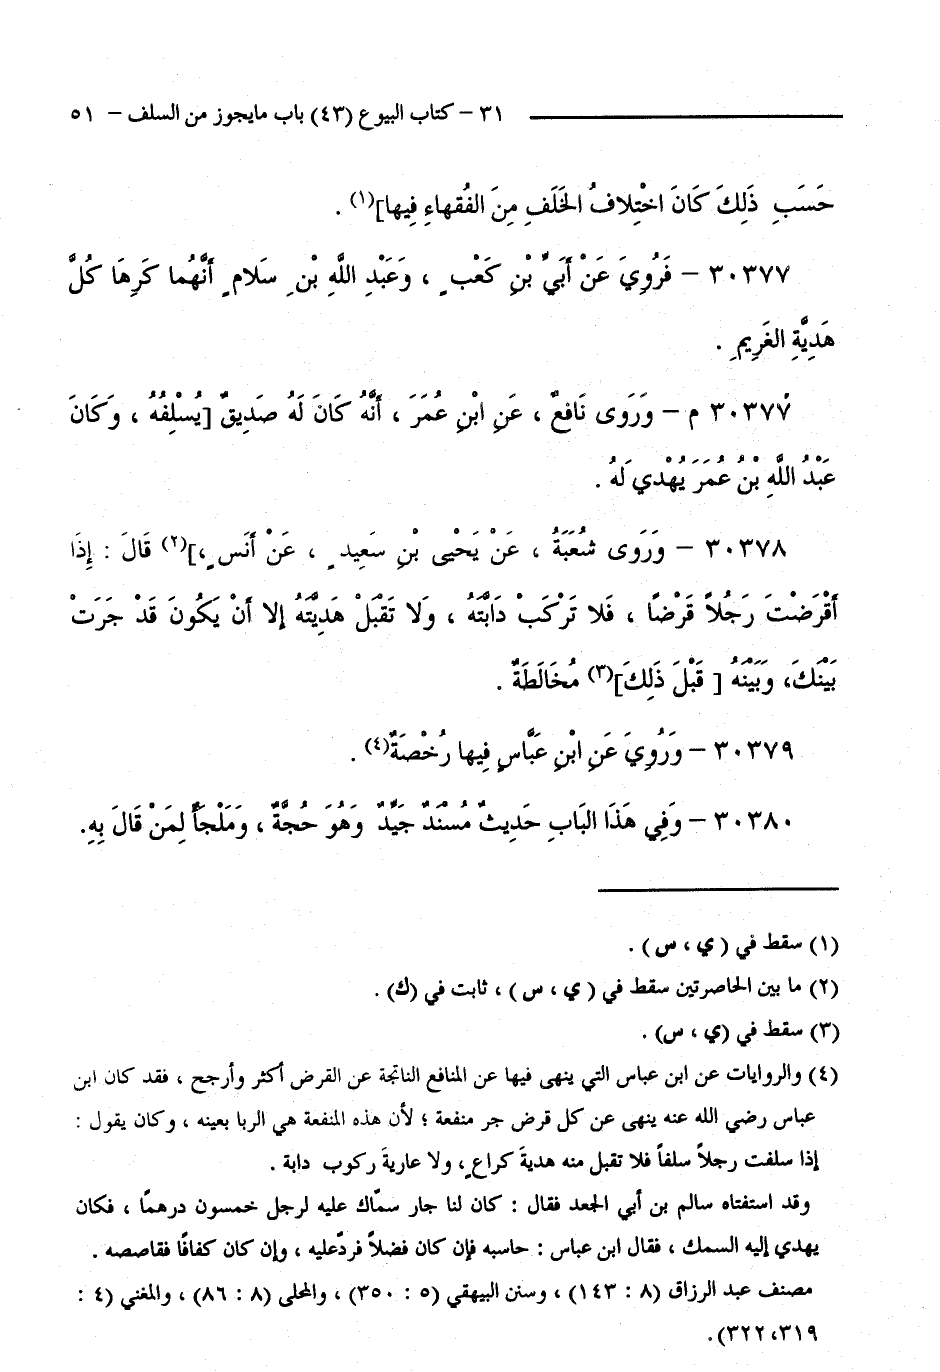 ٣١ – كتاب البيوع (٤٣) باب مايجوز من السلف – ٥١
حَسَبِ ذَلِكَ كَانَ اخْتِلافُ الخَلَفِ مِنَ الفُقهاءِ فِيها](١) .
٣٠٣٧٧ – فَرُوِيَ عَنْ أُبَيِّ بْنِ كَعْبٍ ، وَعَبْدِ اللَّهِ بْنِ سَلامٍ أَنَّهُما كَرِهَا كُلَّ
هَدِيَّةِ الغَرِيمِ .
٣٠٣٧٧ م – وَرَوى نَافعٌ ، عَنِ ابْنِ عُمَرَ ، أَنَّهُ كَانَ لَهُ صَدِيقٌ [يُسْلِفُهُ ، وَكَانَ
عَبْدُ اللَّهِ بْنُ عُمَرَ يُهْدِي لَهُ .
٣٠٣٧٨ – وَرَوى شُعَبَةُ ، عَنْ يَحْيى بْنِ سَعِيدٍ ، عَنْ أَنَسٍ،](٢) قَالَ : إِذَا
أَقْرَضْتَ رَجُلاً قَرْضًا ، فَلا تَرْكَبْ دَابَّتَهُ ، وَلا تَقْبَلْ هَدِيَّتَهُ إلا أَنْ يَكُونَ قَدْ جَرَتْ
بَيْنَكَ، وَبَيْنَهُ [ قَبْلَ ذَلِكَ](٣) مُخَالَطَةٌ .
٣٠٣٧٩ – وَرُوِيَ عَنِ ابْنِ عَبَّاسٍ فِيها رُخْصَةٌ(٤) .
٣٠٣٨٠ – وَفِي هَذَا البَابِ حَدِيثٌ مُسْنَدٌ جَيِّدٌ وَهُوَ حُجَّةٌ ، وَمَلْجَأٌ لِمَنْ قَالَ بِهِ.
(١) سقط في ( ي ، س ) .
(٢) ما بين الحاصرتين سقط في ( ي ، س ) ، ثابت في (ك) .
(٣) سقط في (ي ، س) .
(٤) والروايات عن ابن عباس التي ينهى فيها عن المنافع الناتجة عن القرض أكثر وأرجح ، فقد كان ابن
عباس رضي الله عنه ينهى عن كل قرض جر منفعة ؛ لأن هذه المنفعة هي الربا بعينه ، وكان يقول :
إذا سلفت رجلاً سلفاً فلا تقبل منه هديةَ كراعٍ، ولا عاريةَ ركوب دابة .
وقد استفتاه سالم بن أبي الجعد فقال : كان لنا جار سمّاك عليه لرجل خمسون درهمًا ، فكان
يهدي إليه السمك ، فقال ابن عباس : حاسبه فإن كان فضلاً فردّعليه ، وإن كان كفافًا فقاصصه .
مصنف عبد الرزاق (٨ : ١٤٣) ، وسنن البيهقي (٥ : ٣٥٠) ، والمحلى (٨ : ٨٦) ، والمغني (٤ :
٣١٩، ٣٢٢).